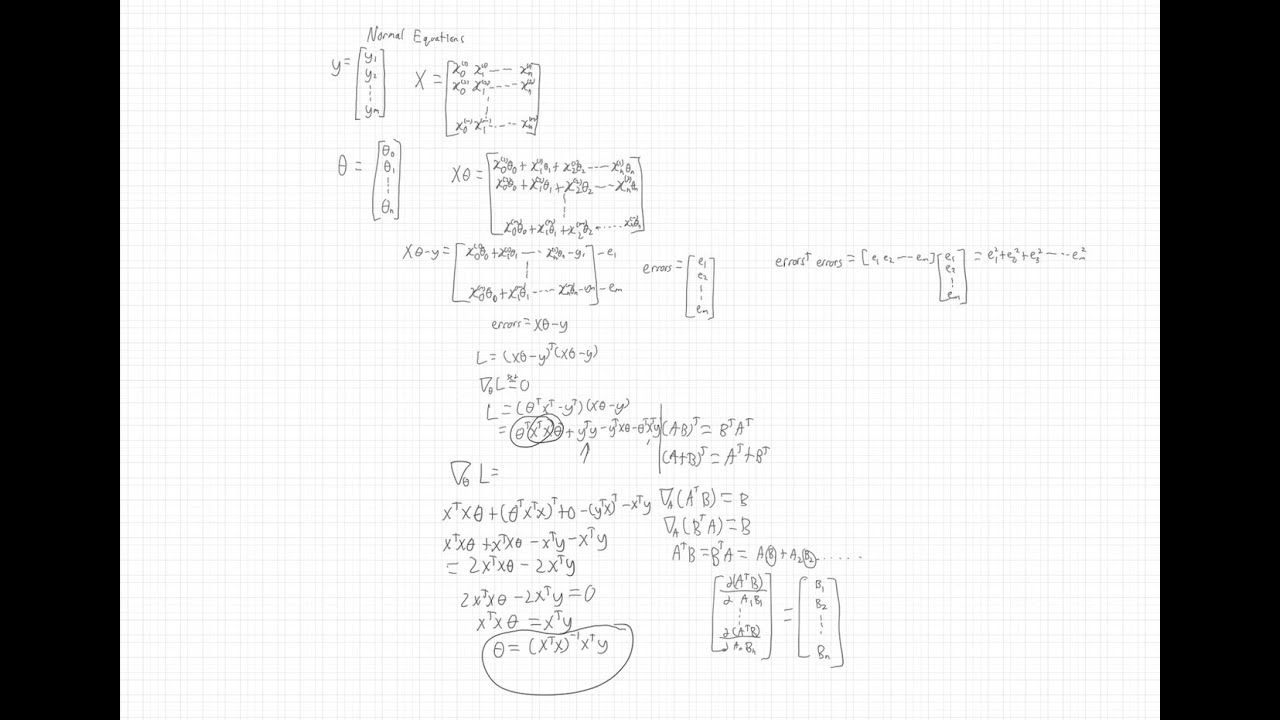 Normal Equations
y = [y₁ y₂ ⋮ yₘ]
X = [x₀⁽¹⁾ x₁⁽¹⁾ --- xₙ⁽¹⁾
x₀⁽²⁾ x₁⁽²⁾ ---- xₙ⁽²⁾
⋮
x₀⁽ᵐ⁾ x₁⁽ᵐ⁾ ---- xₙ⁽ᵐ⁾]
θ = [θ₀ θ₁ ⋮ θₙ]
Xθ = [x₀⁽¹⁾θ₀ + x₁⁽¹⁾θ₁ + x₂⁽¹⁾θ₂ ---- xₙ⁽¹⁾θₙ
x₀⁽²⁾θ₀ + x₁⁽²⁾θ₁ + x₂⁽²⁾θ₂ --- xₙ⁽²⁾θₙ
⋮
x₀⁽ᵐ⁾θ₀ + x₁⁽ᵐ⁾θ₁ + x₂⁽ᵐ⁾θ₂ ..... xₙ⁽ᵐ⁾θₙ]
Xθ-y = [x₀⁽¹⁾θ₀ + x₁⁽¹⁾θ₁ --- xₙ⁽¹⁾θₙ - y₁] - e₁
⋮
[x₀⁽ᵐ⁾θ₀ + x₁⁽ᵐ⁾θ₁ ---- xₙ⁽ᵐ⁾θₙ - yₘ] - eₘ
errors = [e₁ e₂ ⋮ eₘ]
errorsᵀ errors = [e₁ e₂ --- eₘ] [e₁ e₂ ⋮ eₘ] = e₁² + e₂² + e₃² --- eₘ²
errors = Xθ-y
L = (Xθ-y)ᵀ(Xθ-y)
∇θ L = 0
L = (θᵀXᵀ - yᵀ)(Xθ-y)
= θᵀXᵀXθ + yᵀy - yᵀXθ - θᵀXᵀy
(AB)ᵀ = BᵀAᵀ
(A+B)ᵀ = Aᵀ+Bᵀ
∇θ L =
XᵀXθ + (θᵀXᵀX)ᵀ + 0 - (yᵀX)ᵀ - Xᵀy
XᵀXθ + XᵀXθ - Xᵀy - Xᵀy
= 2XᵀXθ - 2Xᵀy
2XᵀXθ - 2Xᵀy = 0
XᵀXθ = Xᵀy
θ = (XᵀX)⁻¹Xᵀy
∇A(AᵀB) = B
∇A(BᵀA) = B
AᵀB = BᵀA = A,B, + A₂B₂ ......
[∂(AᵀB)/∂ A₁B₁ ⋮ ∂(AᵀB)/∂ AₙBₙ] = [B₁ B₂ ⋮ Bₙ]